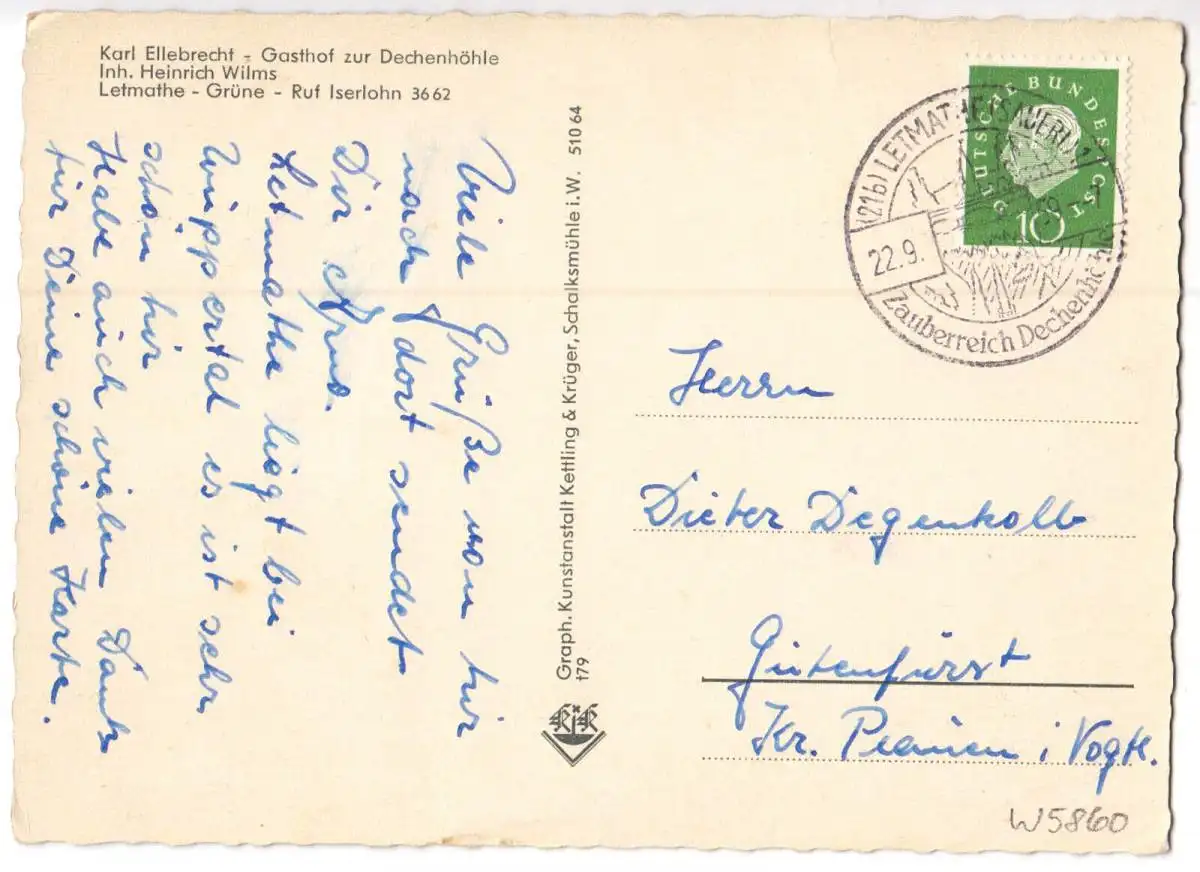 Karl Ellebrecht - Gasthof zur Dechenhöhle
Inh. Heinrich Wilms
Letmathe - Grüne - Ruf Iserlohn 3662
Viele Grüße von hir
nach dort sendet
Dir Arno.
Letmathe ligt bei
Wuppertal es ist sehr
schön hir
Habe auch vielen Dank
für Deine schöne Karte.
Graph. Kunstanstalt Kettling & Krüger, Schalksmühle i.W. 51064
t79
K&K
DEUTSCHE BUNDESPOST
10
(21b) LETMATHE (SAUERL)
22.9.
Zauberreich Dechenhöhle
Herrn
Dieter Degenkolb
Gutenfürst
Kr. Plauen i Vogtl.
W5860